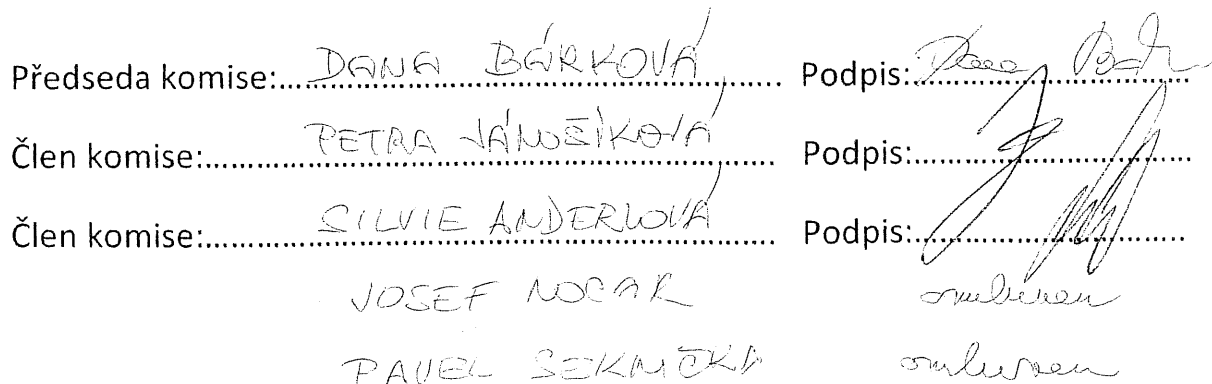 Předseda komise: DANA BÁRKOVÁ Podpis:
Člen komise: PETRA JÁNOŠÍKOVÁ Podpis:
Člen komise: SILVIE ANDERLOVÁ Podpis:
JOSEF NOCAR omluven
PAVEL omluven